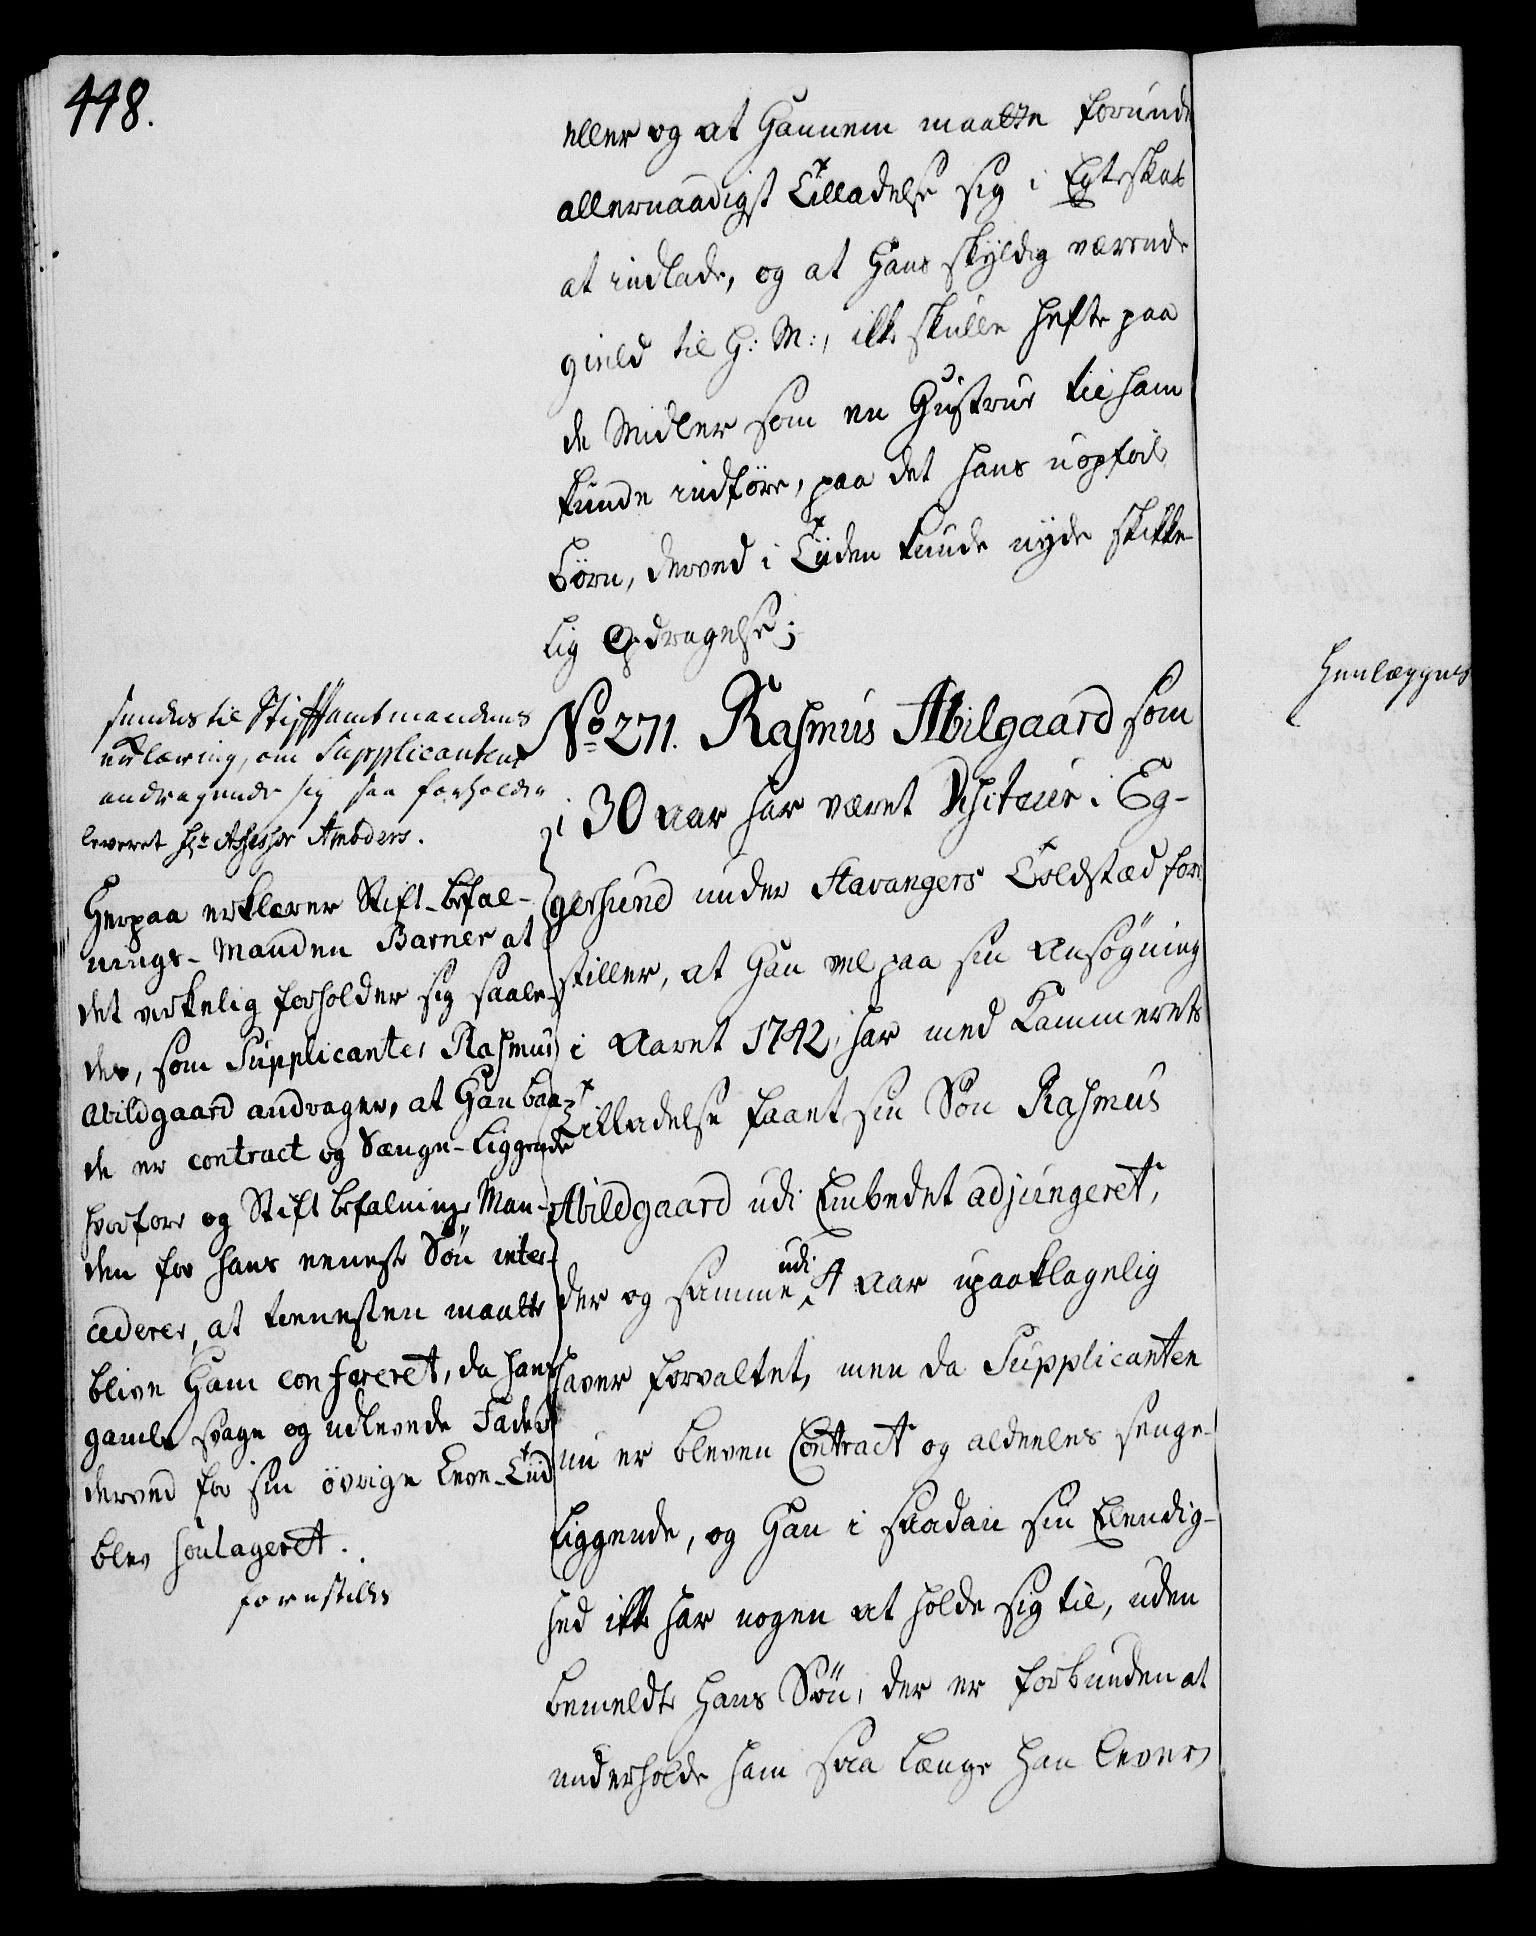 448.
eller og at Hannem maatte forunde
allernaadigst Tilladelse sig i Egteskab
at indlade, og at Hans skyldig værende
gield til H: M:, ikke skulle hefte paa
de Midler som en Hustrue til ham
kunde indføre, paa det hans uopfød
Børn, derved i Tiiden kunde nyde skikke-
lig Opdragelse;
No 271. Rasmus Abilgaard som
i 30 Aar har været Visiteur i Eg-
gersund under Stavangers Toldstæd fore
stiller, at Han vel paa sin Ansøgning
i Aaret 1742, har med Kammerets
Tilladelse faaet sin Søn Rasmus
Abildgaard udi Embedet adjungeret,
der og samme udi 4 Aar upaaklagelig
haver forvaltet, men da Supplicanten
nu er bleven Contract og aldeeles senge-
liggende, og Han i saadan sin Elendig-
hed ikke har nogen at holde sig til, uden
bemeldte Hans Søn, der er forbunden at
underholde ham saa længe han lever,
sendes til Stiftamtmandens
erklæring, om Supplicantens
andragende sig saa forholder
leveret Hr. Assessor Amders.
Herpaa erklærer Stift-befal-
nings-Manden Barner at
det virkelig forholder sig saale-
des, som Supplicanten Rasmus
Abildgaard andrager, at Han baa-
de er contract og Sænge-liggende
hvorfore og Stiftbefalnings Man-
den for hans eeneste Søn inter-
cederer, at tienesten maatte
blive Ham confereret, da hans
gamle svage og udlevende Fader
derved for sin øvrige Leve-Tiid
blev soulageret.
forestilles
Henlægges